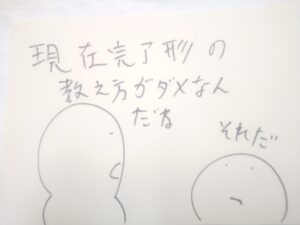 現在完了形の
教え方がダメなん
だね
それだ